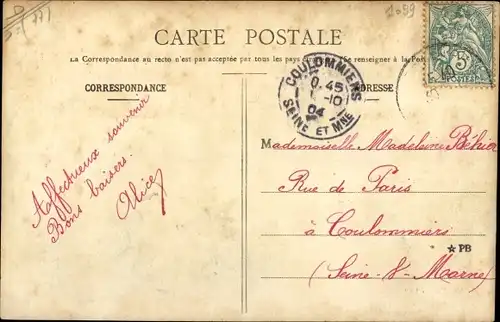 1059
CARTE POSTALE
La Correspondance au recto n'est pas acceptée par tous les pays se renseigner à la
CORRESPONDANCE
ADRESSE
COULOMMIERS
0.45
10
04
SEINE ET MNE
5c
POSTES
Affectueux souvenir
Bons baisers.
Alice
Mademoiselle Madeleine
Rue de Paris
à Coulommiers
☆ PB
(Seine-&-Marne)